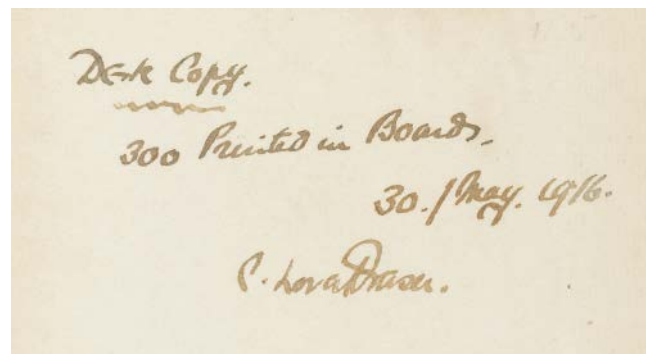 Desk Copy.
300 Printed in Boards.
30. / May. 1916.
C. Lovat Fraser.